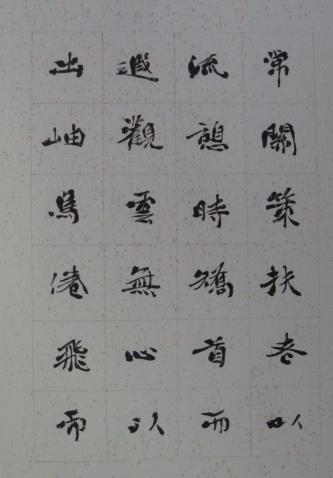 常關策扶老以
流憩時矯首而
遐觀雲無心以
出岫鳥倦飛而